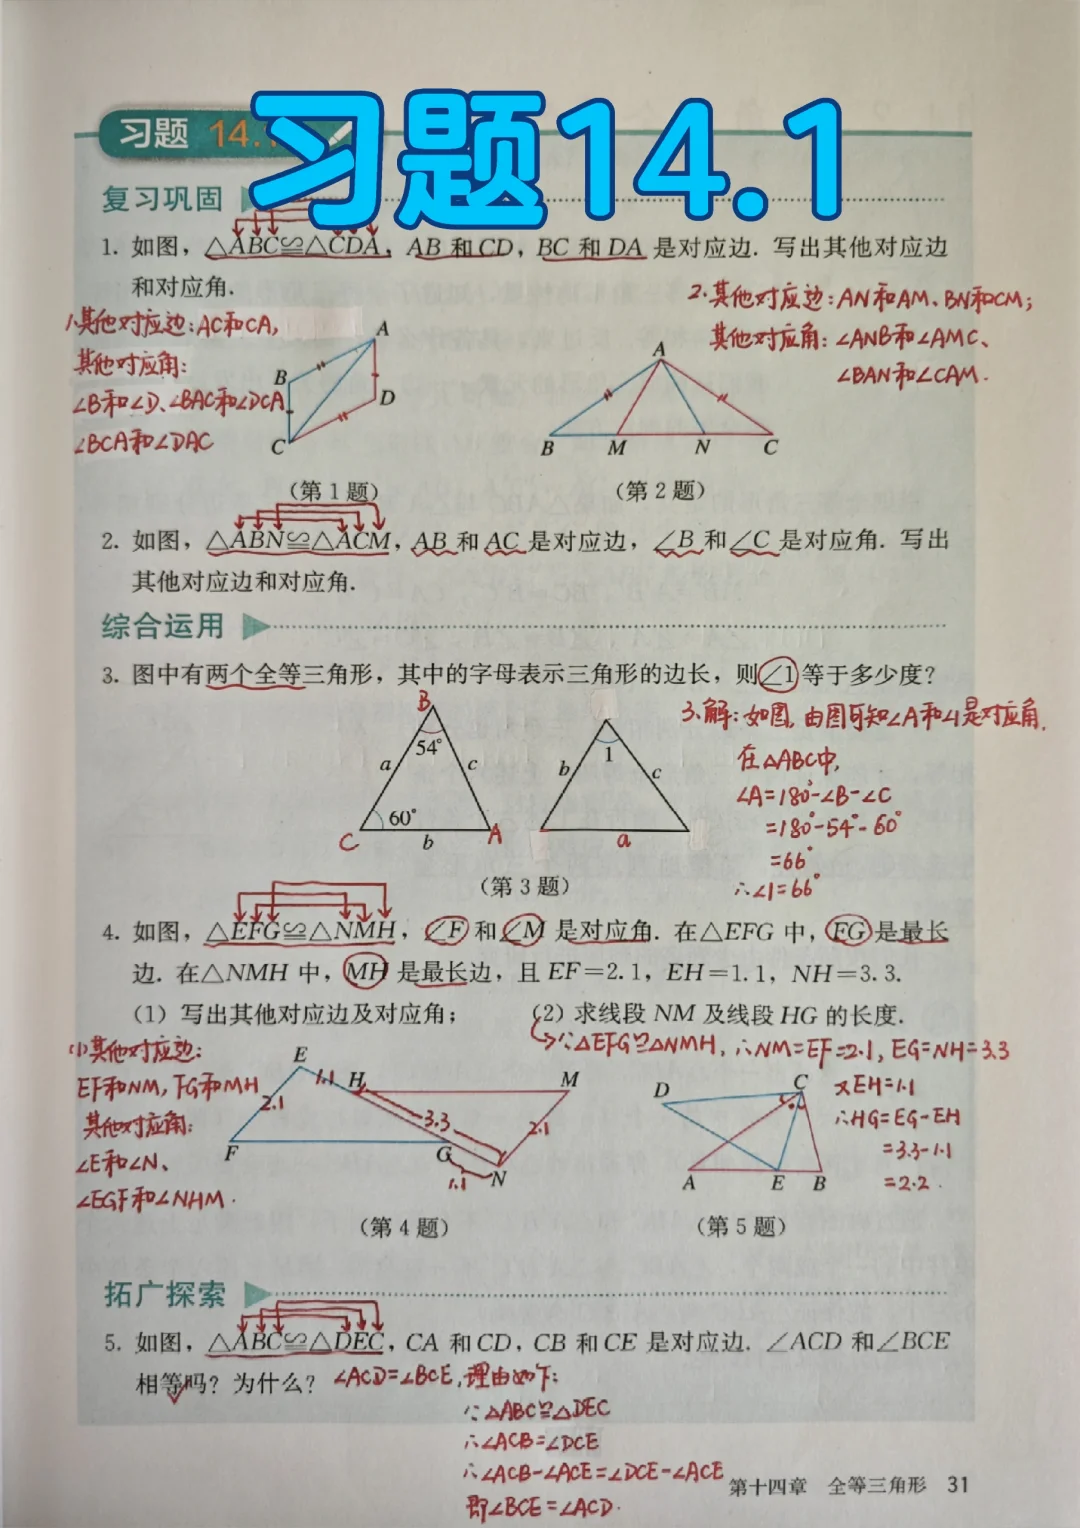 习题14.1
习题 14.1
复习巩固
1. 如图，△ABC≌△CDA，AB 和 CD，BC 和 DA 是对应边. 写出其他对应边
和对应角.
1.其他对应边:AC和CA,
其他对应角:
∠B和∠D、∠BAC和∠DCA
∠BCA和∠DAC
A
B
D
C
（第 1 题）
2.其他对应边:AN和AM、BN和CM;
其他对应角:∠ANB和∠AMC、
∠BAN和∠CAM.
A
B M N C
（第 2 题）
2. 如图，△ABN≌△ACM，AB 和 AC 是对应边，∠B 和∠C 是对应角. 写出
其他对应边和对应角.
综合运用
3. 图中有两个全等三角形，其中的字母表示三角形的边长，则∠1 等于多少度？
B
54°
a c
60°
C b A
1
b c
a
（第 3 题）
3.解:如图,由图可知∠A和∠1是对应角.
在△ABC中,
∠A=180°-∠B-∠C
=180°-54°-60°
=66°
∴∠1=66°
4. 如图，△EFG≌△NMH，∠F 和∠M 是对应角. 在△EFG 中，FG 是最长
边. 在△NMH 中，MH 是最长边，且 EF=2.1，EH=1.1，NH=3.3.
（1）写出其他对应边及对应角；（2）求线段 NM 及线段 HG 的长度.
(1)其他对应边:
EF和NM, FG和MH
其他对应角:
∠E和∠N、
∠EGF和∠NHM.
E
1.1 H M
2.1 3.3 2.1
F G
1.1 N
（第 4 题）
∵△EFG≌△NMH, ∴NM=EF=2.1, EG=NH=3.3
又EH=1.1
∴HG=EG-EH
=3.3-1.1
=2.2.
D C
A E B
（第 5 题）
拓广探索
5. 如图，△ABC≌△DEC，CA 和 CD，CB 和 CE 是对应边. ∠ACD 和∠BCE
相等吗？为什么？
∠ACD=∠BCE,理由如下:
∵△ABC≌△DEC
∴∠ACB=∠DCE
∴∠ACB-∠ACE=∠DCE-∠ACE
即∠BCE=∠ACD.
第十四章 全等三角形 31